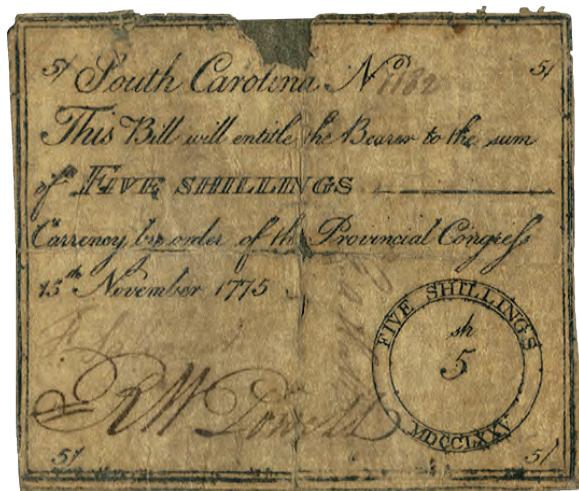 5/ South Carolina No 1182 5/
This Bill will entitle the Bearer to the sum
of FIVE SHILLINGS
Currency by order of the Provincial Congress
15th November 1775
FIVE SHILLINGS
sh
5
MDCCLXXV
5/ 5/